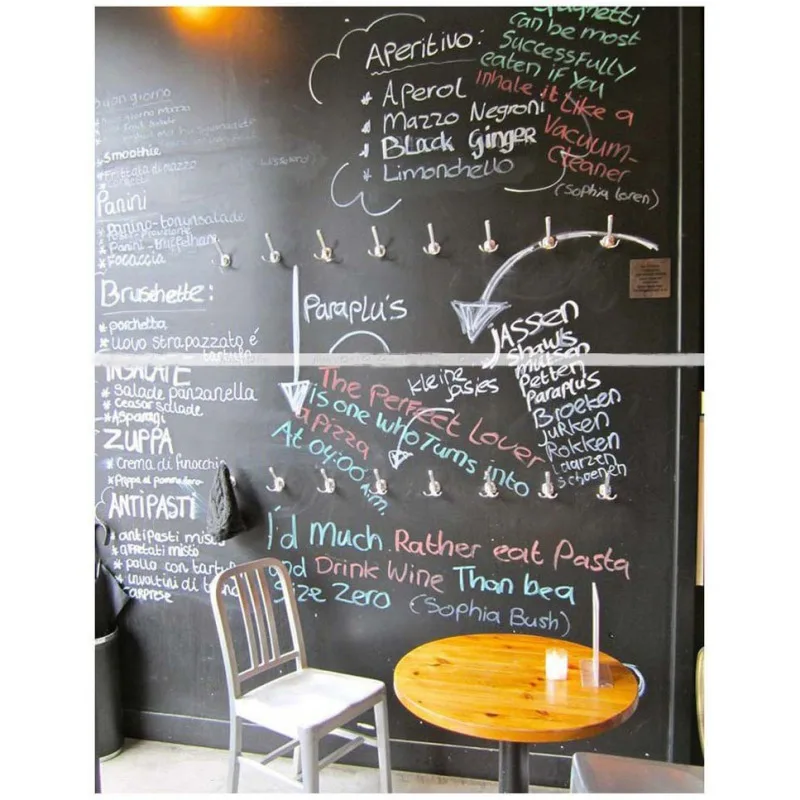 Buon giorno
Smoothie
Frittata di mazzo
Panini
panino-tonunsalade
Focaccia
Bruschette:
* porchetta
* uovo strapazzato é
tartufo
INSALATE
* Salade panzanella
* Ceasar salade
* Asparagi
ZUPPA
* Crema di finocchio
* Pappa al pomodoro
ANTIPASTI
* antipasti misto
* affettati misto
* pollo con tartufo
* involtini di
Caprese
Aperitivo:
* Aperol
* Mazzo Negroni
* Black Ginger
* Limonchello
Spaghetti
Can be most
Successfully
eaten if you
Inhale it Like a
Vacuum-
Cleaner
(Sophia Loren)
Paraplu's
JASSEN
Shawls
mutsen
Petten
Paraplu's
Broeken
Jurken
Rokken
Laarzen
Schoenen
kleine
jasjes
The Perfect Lover
is one who Turns into
a pizza
At 04:00 a.m.
I'd Much Rather eat Pasta
and Drink Wine Than be a
Size Zero (Sophia Bush)